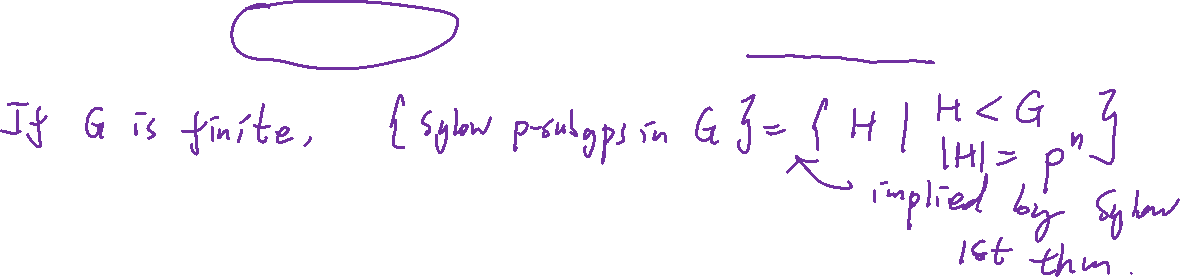 If G is finite, { Sylow p-subgps in G } = { H | H < G |H| = pⁿ }
implied by Sylow
1st thm.